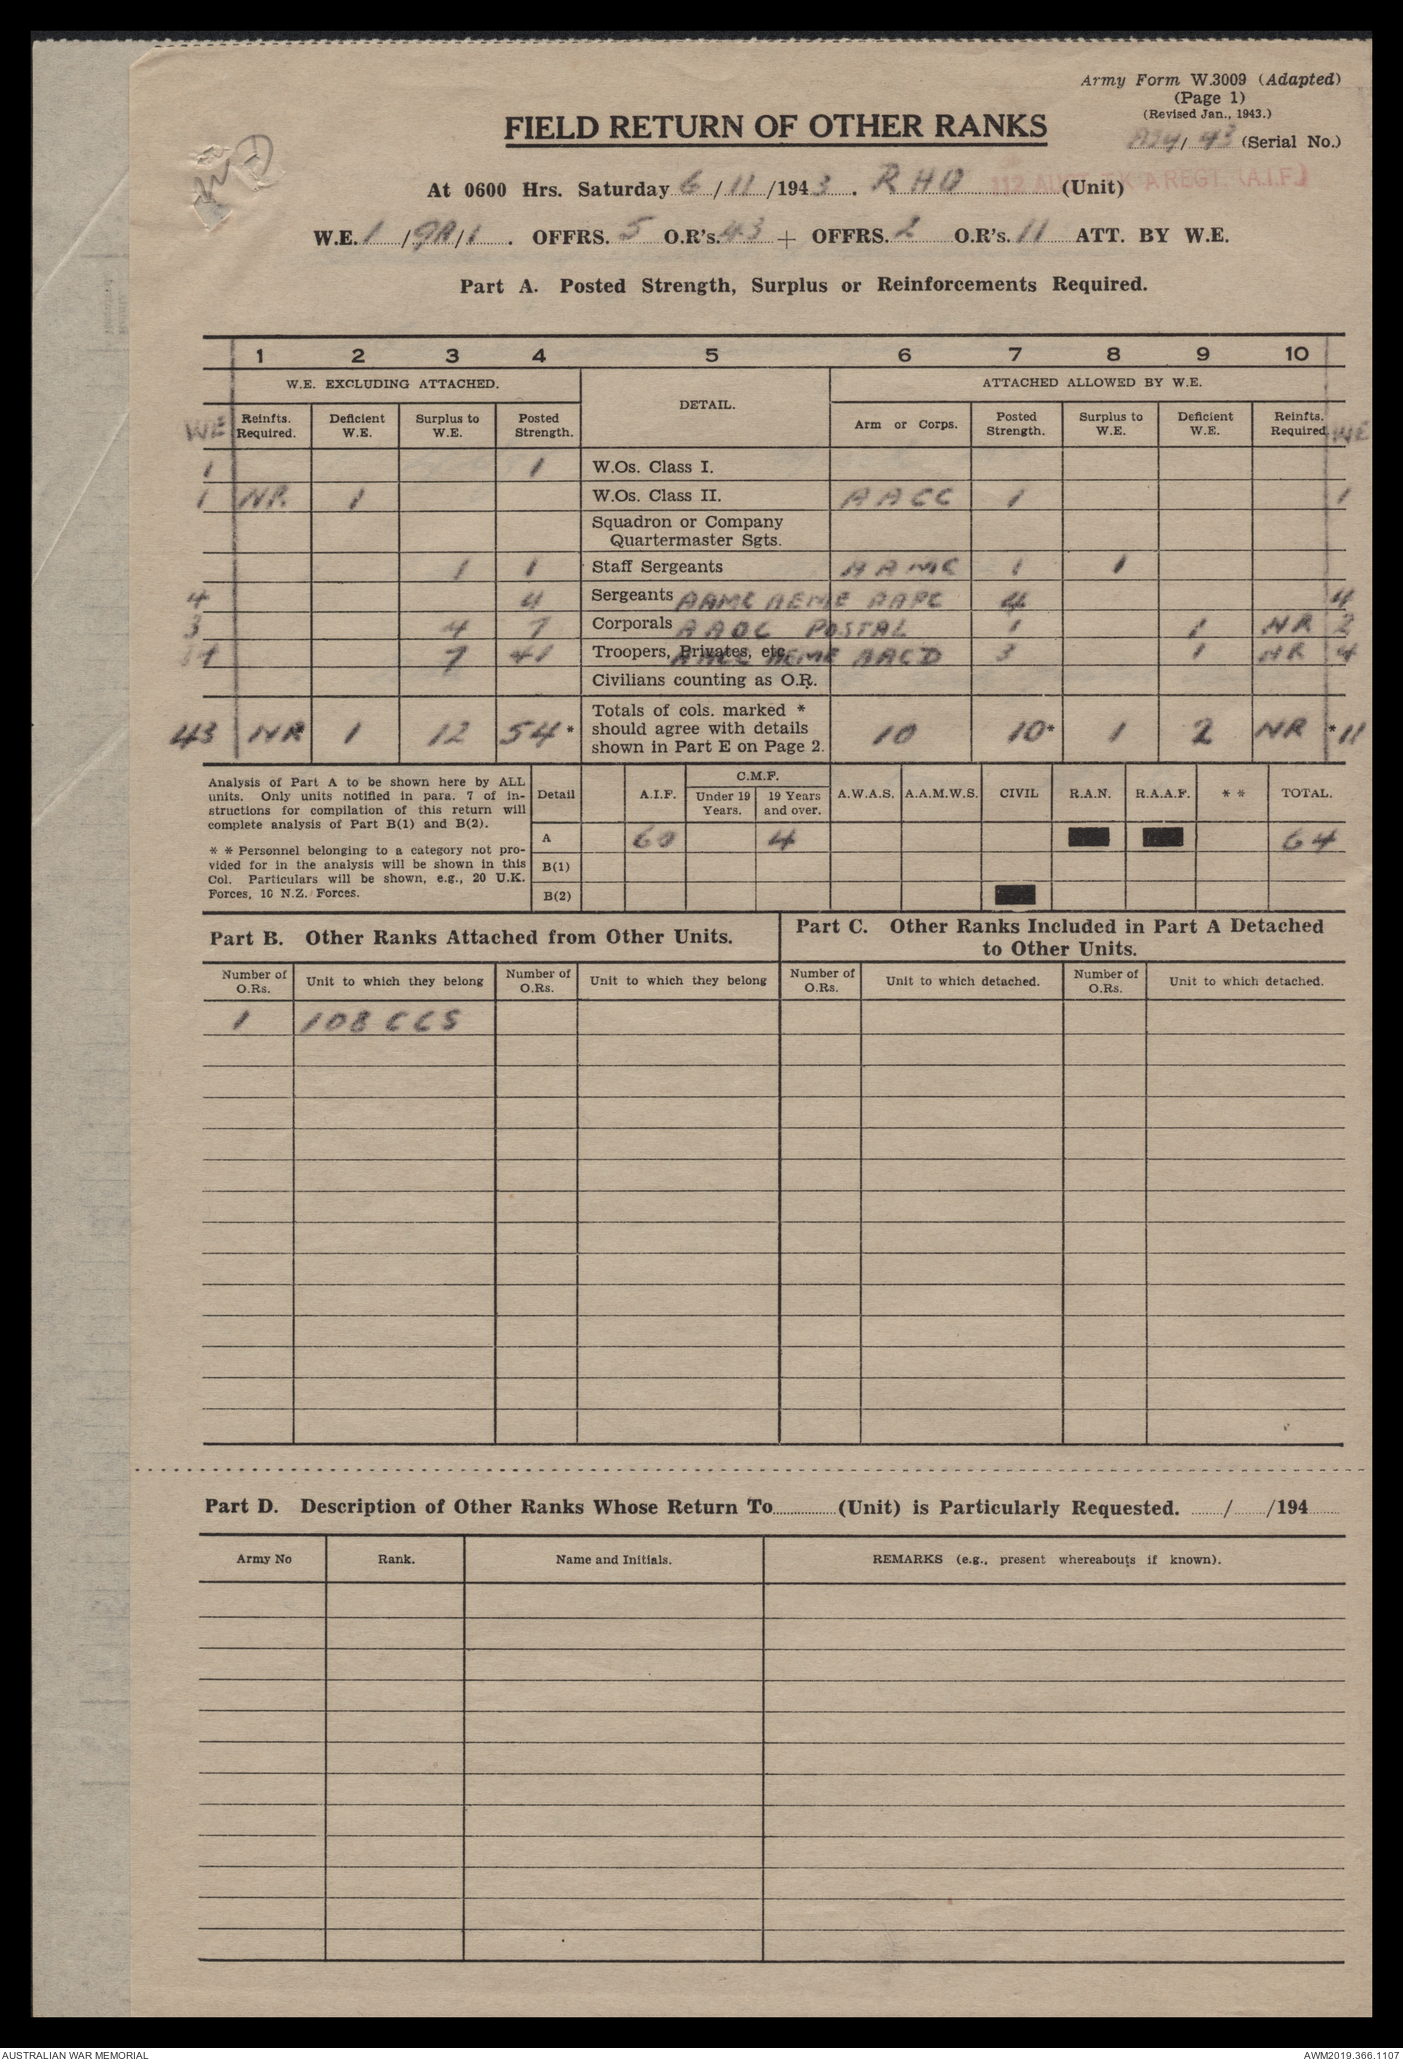 Army Form W.3009 (Adapted)
(Page 1)
(Revised Jan., 1943.)
FIELD RETURN OF OTHER RANKS
/ 43 (Serial No.)
At 0600 Hrs. Saturday 6 / 11 /1943. RHQ 112 A.I.F.) (Unit)
W.E. 1 /9A/1 . OFFRS. 5 O.R's. 43 + OFFRS. 2 O.R's. 11 ATT. BY W.E.
Part A. Posted Strength, Surplus or Reinforcements Required.
1 2 3 4 5 6 7 8 9 10
W.E. EXCLUDING ATTACHED. DETAIL. ATTACHED ALLOWED BY W.E.
WE Reinfts. Required. Deficient W.E. Surplus to W.E. Posted Strength. Arm or Corps. Posted Strength. Surplus to W.E. Deficient W.E. Reinfts. Required. WE
1 1 W.Os. Class I.
1 NR. 1 W.Os. Class II. AACC 1 1
Squadron or Company
Quartermaster Sgts.
1 1 Staff Sergeants AAMC 1 1
4 4 Sergeants AAMC AEME AAPC 4 4
3 4 7 Corporals AAOC POSTAL 1 1 NR 2
7 41 Troopers, Privates, etc. AACC AEME AACD 3 1 NR 4
Civilians counting as O.R.
43 NR 1 12 54* Totals of cols. marked * should agree with details shown in Part E on Page 2. 10 10* 1 2 NR *11
Analysis of Part A to be shown here by ALL
units. Only units notified in para. 7 of in-
structions for compilation of this return will
complete analysis of Part B(1) and B(2).
* * Personnel belonging to a category not pro-
vided for in the analysis will be shown in this
Col. Particulars will be shown, e.g., 20 U.K.
Forces, 10 N.Z. Forces.
Detail A.I.F. C.M.F. Under 19 Years. 19 Years and over. A.W.A.S. A.A.M.W.S. CIVIL R.A.N. R.A.A.F. * * TOTAL.
A 60 4 64
B(1)
B(2)
Part B. Other Ranks Attached from Other Units.
Part C. Other Ranks Included in Part A Detached
to Other Units.
Number of O.Rs. Unit to which they belong Number of O.Rs. Unit to which they belong Number of O.Rs. Unit to which detached. Number of O.Rs. Unit to which detached.
1 108 CCS
Part D. Description of Other Ranks Whose Return To.......... (Unit) is Particularly Requested. ....../....../194......
Army No Rank. Name and Initials. REMARKS (e.g., present whereabouts if known).
AUSTRALIAN WAR MEMORIAL AWM2019.366.1107